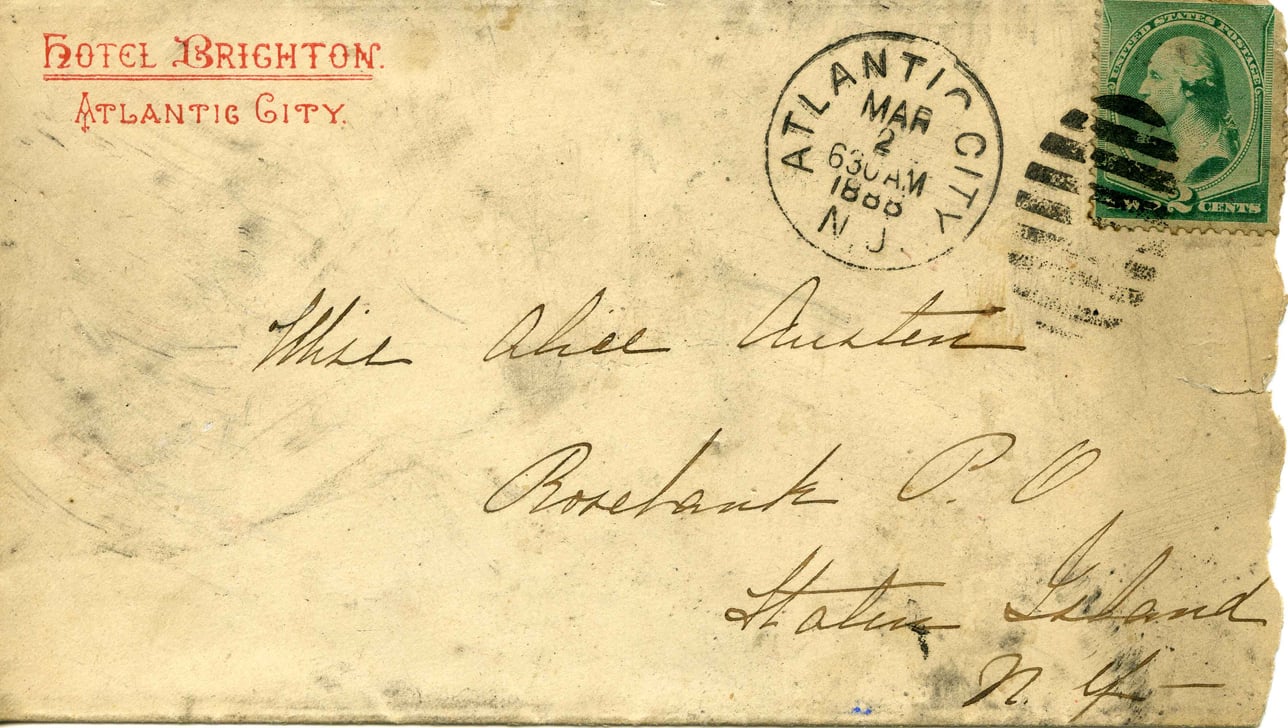 HOTEL BRIGHTON.
ATLANTIC CITY.
ATLANTIC CITY
MAR
2
630 AM
1888
N.J.
UNITED STATES POSTAGE
TWO 2 CENTS
Miss Alice Austen
Rosebank P. O
Staten Island
N. Y.